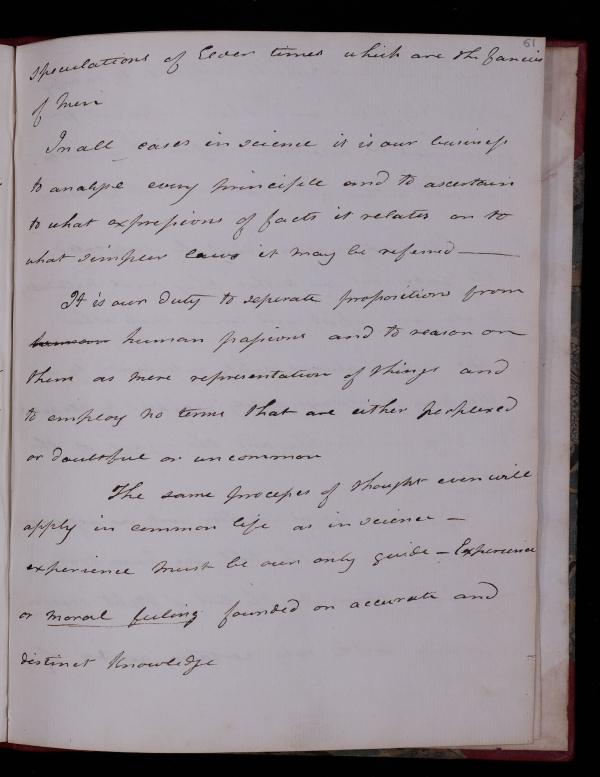 61
speculations of Elder times which are the fancies
of men
In all cases in science it is our business
to analyse every principle and to ascertain
to what expressions of facts it relates or to
what simpler laws it may be referred —
It is our duty to seperate propositions from
human passions and to reason on
them as mere representation of things and
to employ no terms that are either perplexed
or doubtful or uncommon
The same processes of thought even will
apply in common life as in science —
experience must be our only guide – Experience
or moral feeling founded on accurate and
distinct knowledge